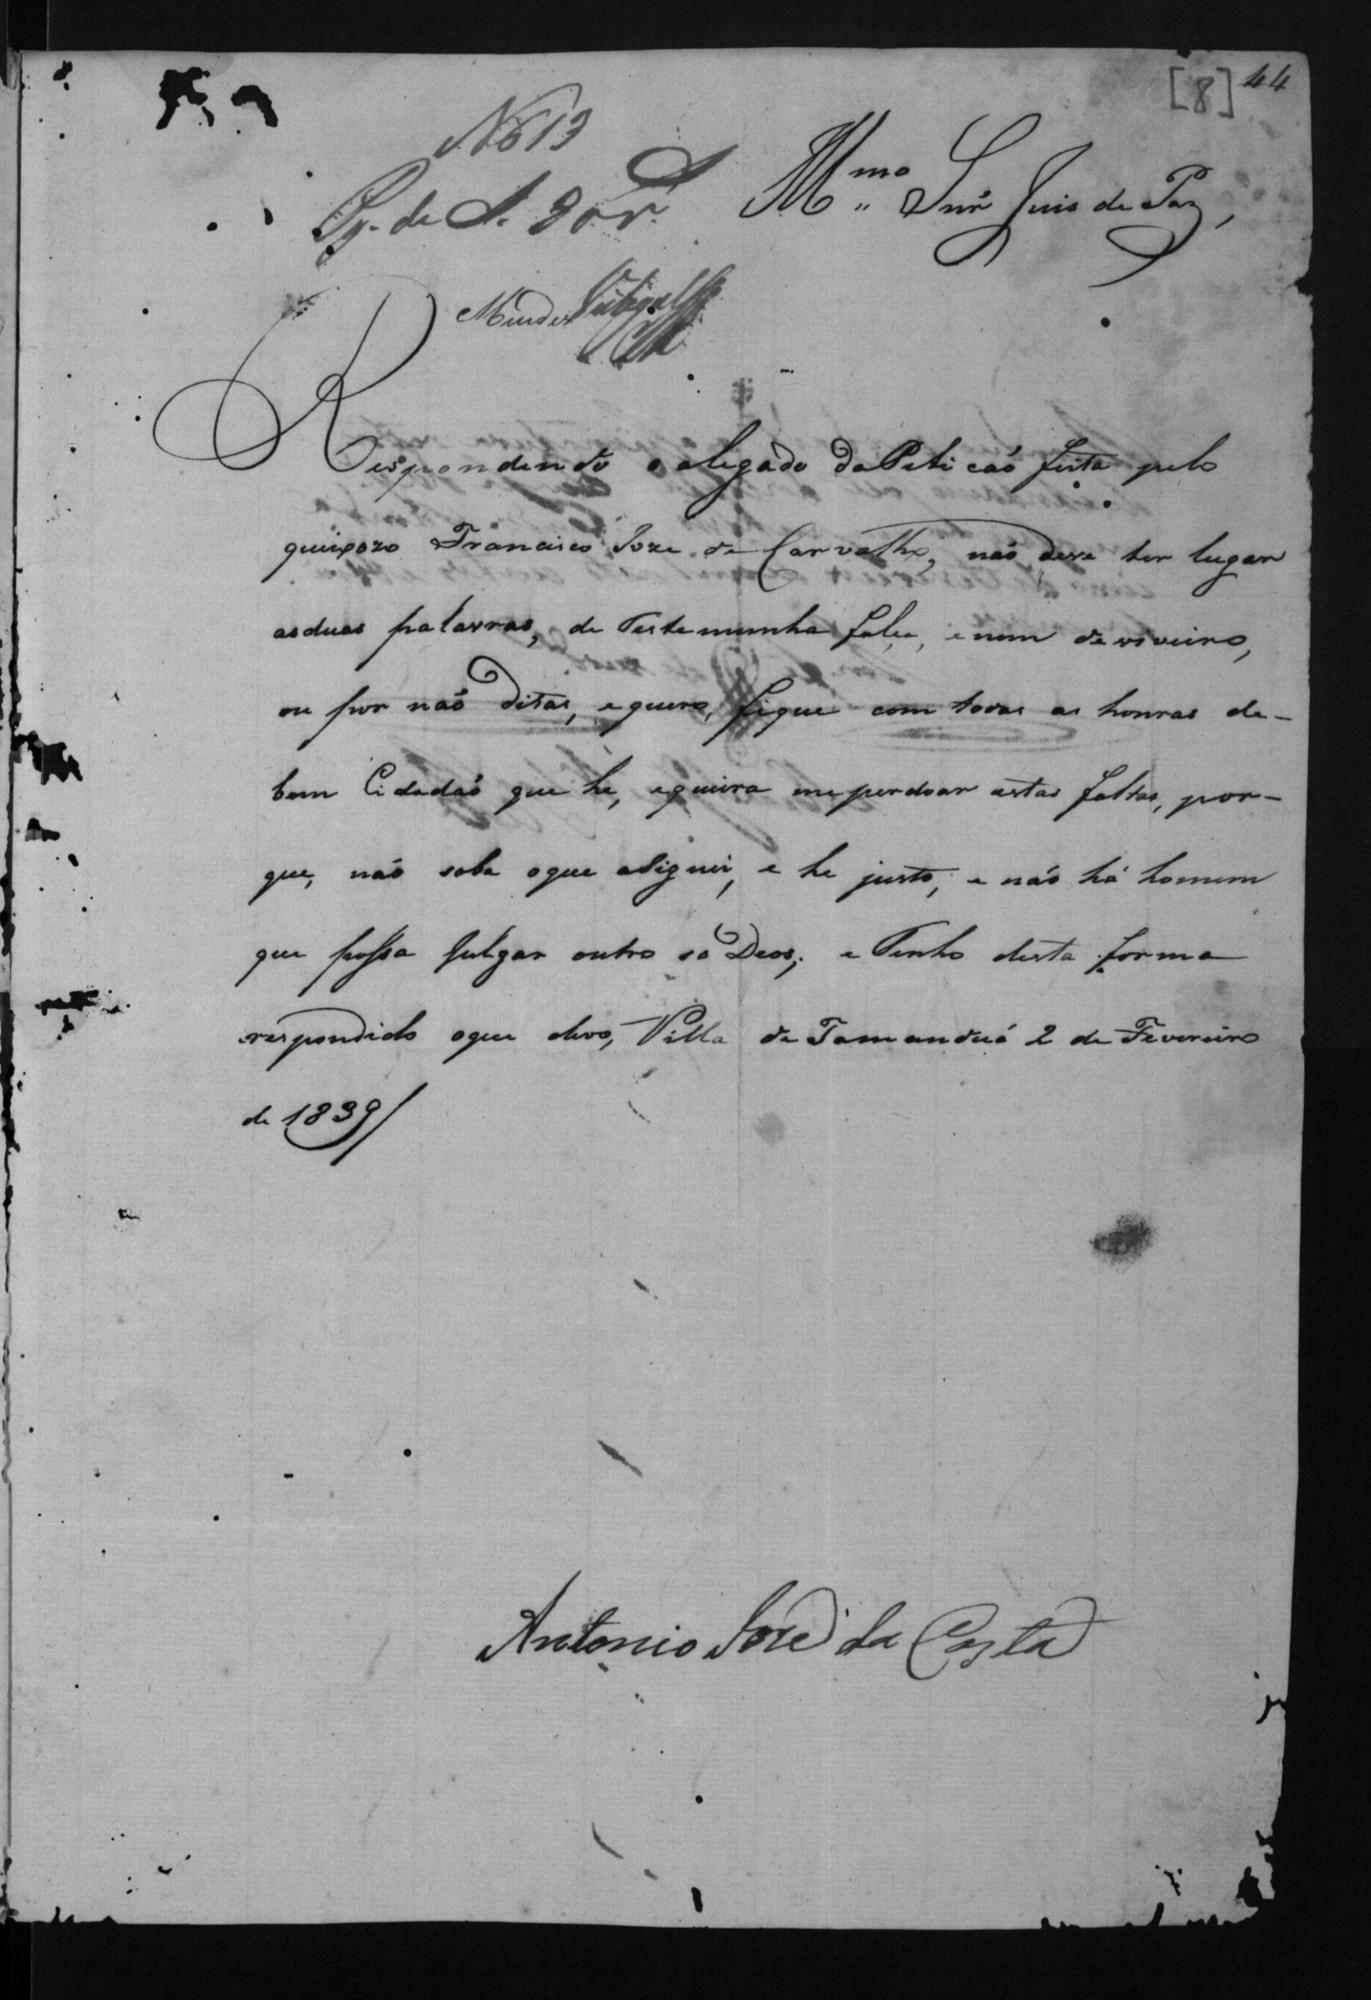 [8] 44
No 13
Pg. de S. 80 r.
Mmo Snr Juis de Paz,
Mendes
Respondendo o alegado da Peticaó feita pelo
queixozo Francisco Joze de Carvalho, naó deve ter lugar
as duas palavras, de Testemunha falça, e nem
ou por naó ditas, e quero, fique com todas as honras de-
bom Cidadaó que he, e queira me perdoar estas faltas, por-
que, naó sabe o que asignei, e he justo, e naó há homem
que possa julgar outro só Deos, e Tenho desta forma
respondido o que devo, Villa de Tamanduá 2 de Fevereiro
de 1839/
Antonio Joze da Costa